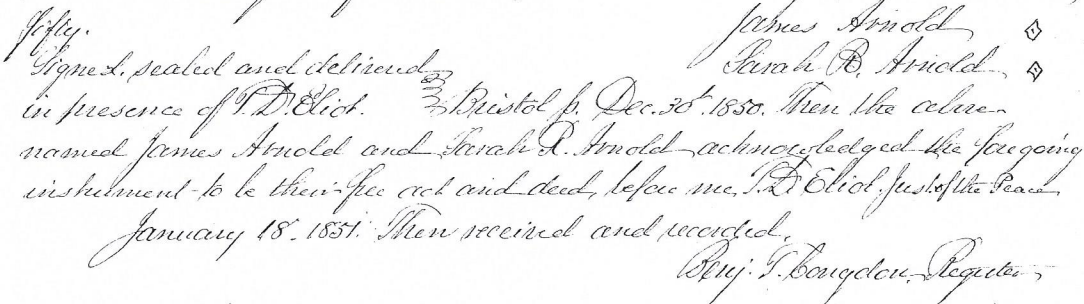 fifty. James Arnold
Signed, sealed and delivered Sarah R. Arnold
in presence of T. D. Eliot. Bristol ss. Dec. 30th. 1850. Then the above
named James Arnold and Sarah R. Arnold acknowledged the foregoing
instrument to be their free act and deed, before me, T. D. Eliot. Just. of the Peace
January 18. 1851. Then received and recorded.
Benj. T. Congdon, Register